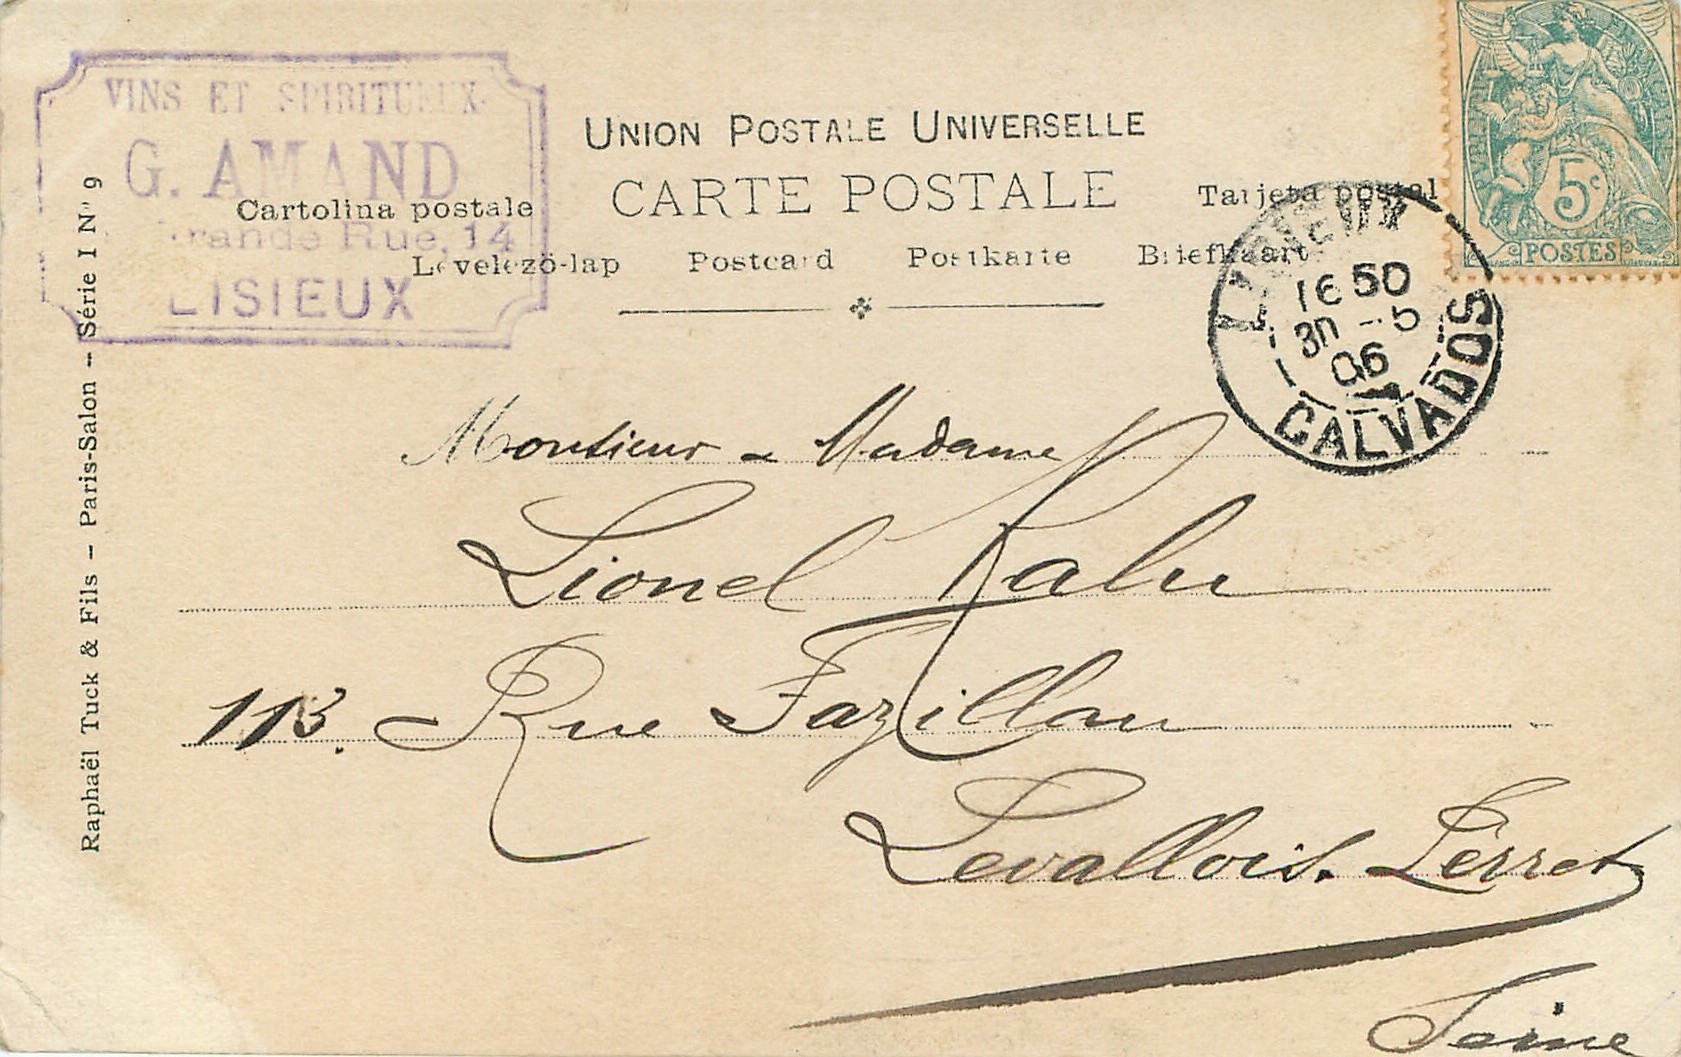 VINS ET SPIRITUEUX
G. AMAND
Grande Rue, 14
LISIEUX
UNION POSTALE UNIVERSELLE
CARTE POSTALE
Cartolina postale
Tarjeta postal
Levelező-lap Postcard Postkarte Briefkaart
5c
POSTES
LISIEUX
16 50
30 - 5
06
CALVADOS
Raphaël Tuck & Fils – Paris-Salon – Série I No 9
Monsieur & Madame
Lionel
113. Rue Fazillau
Levallois-Perret
Seine